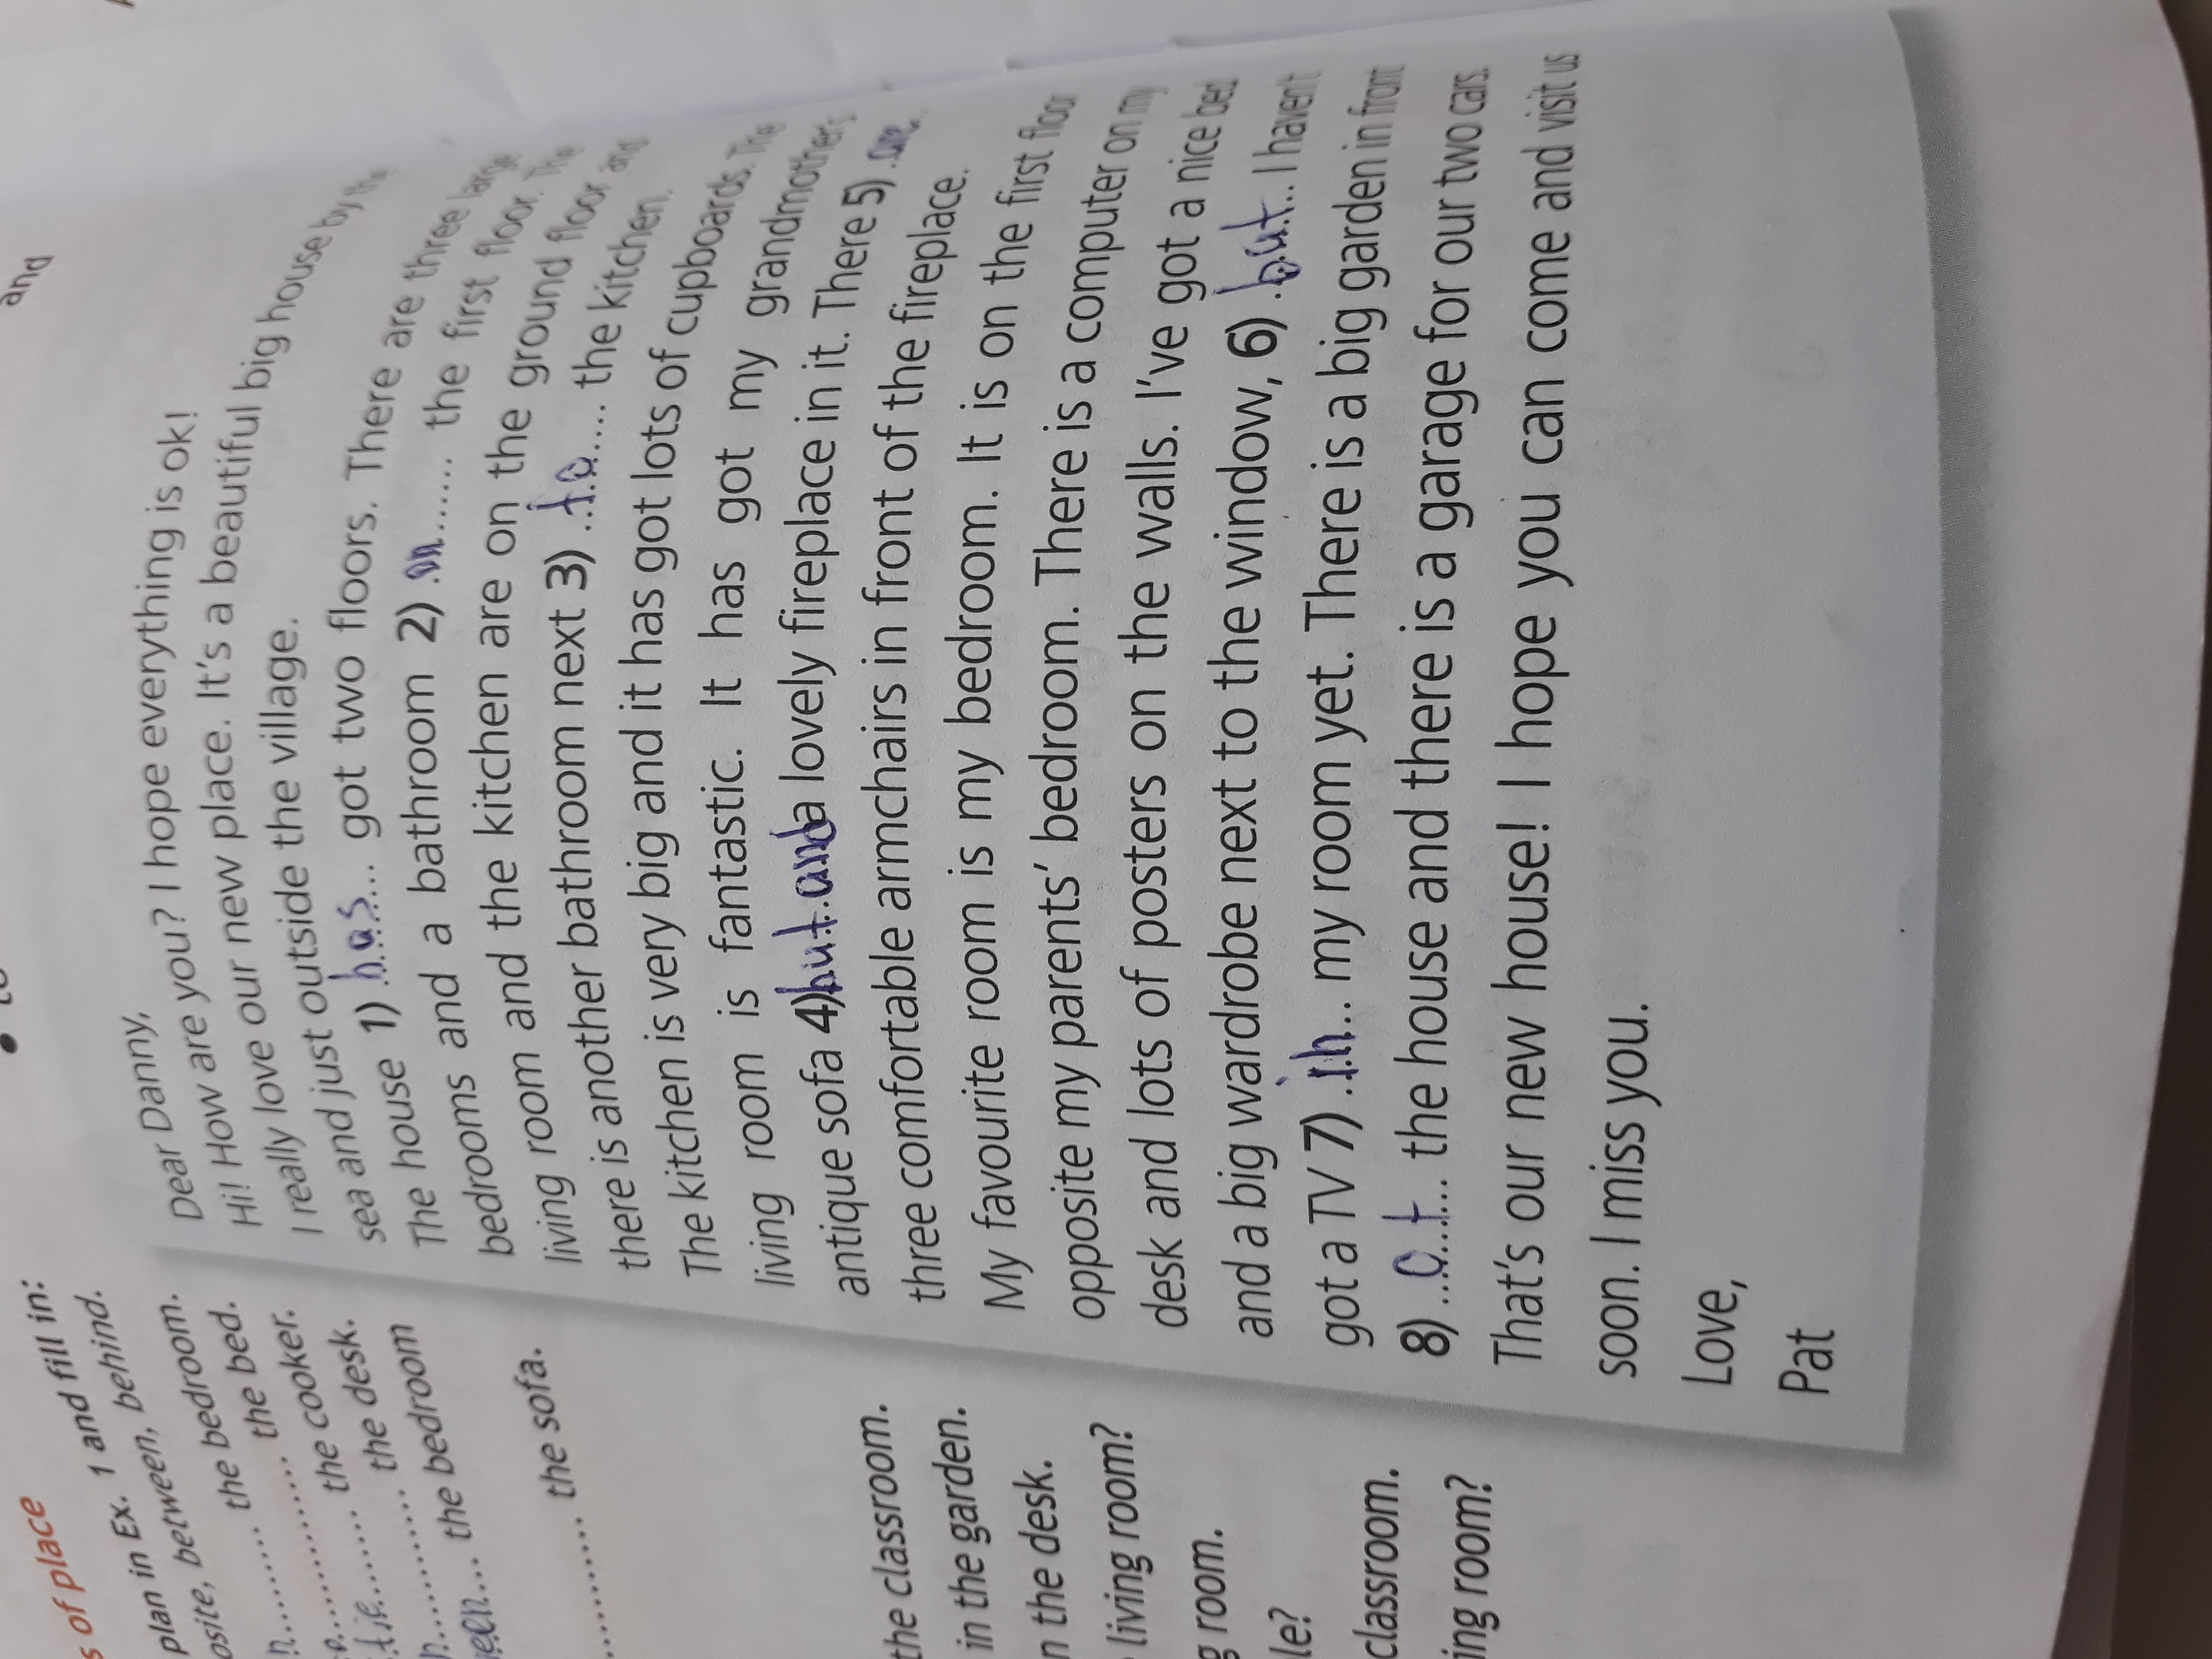 and
s of place
plan in Ex. 1 and fill in:
osite, between, behind.
the bedroom.
n.......... the bed.
............... the cooker.
.......... the desk.
n............... the desk.
... the bedroom
............ the sofa.
the classroom.
in the garden.
n the desk.
living room?
g room.
le?
classroom.
ing room?
Dear Danny,
Hi! How are you? I hope everything is ok!
I really love our new place. It's a beautiful big house by the
sea and just outside the village.
The house 1) has got two floors. There are three large
bedrooms and a bathroom 2) on the first floor. The
living room and the kitchen are on the ground floor and
there is another bathroom next 3) to the kitchen.
The kitchen is very big and it has got lots of cupboards. The
living room is fantastic. It has got my grandmother's
antique sofa 4) but and a lovely fireplace in it. There 5) are
three comfortable armchairs in front of the fireplace.
My favourite room is my bedroom. It is on the first floor
opposite my parents' bedroom. There is a computer on my
desk and lots of posters on the walls. I've got a nice bed
and a big wardrobe next to the window, 6) but I haven't
got a TV 7) in my room yet. There is a big garden in front
8) of the house and there is a garage for our two cars.
That's our new house! I hope you can come and visit us
soon. I miss you.
Love,
Pat